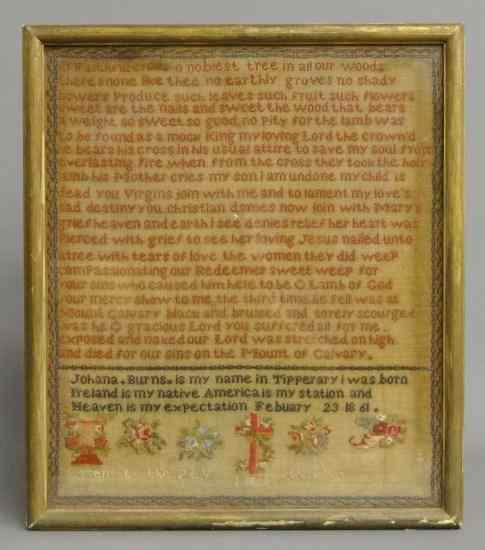 O Faithful Cross O noblest tree in all our woods
there's none like thee no earthly groves no shady
bowers Produce such leaves such fruit such flowers
sweet are the nails and sweet the wood that bears
a weight so sweet so good no pity for the lamb was
to be found as a mock King my loving Lord the crown'd
he bears his cross in his usual attire to save my soul from
everlasting fire when from the cross they took the holy
lamb his Mother cries my son i am undone my child is
dead you Virgins join with me and to lament my love's
sad destiny you christian dames now join with Mary's
grief heaven and earth i see denies relief her heart was
pierced with grief to see her loving Jesus nailed unto
a tree with tears of love the women they did weep
compassionating our Redeemer sweet weep for
your sins who caused him here to be O Lamb of God
your mercy show to me the third time he fell was at
Mount Calvary black and bruised and sorely scourged
was he O gracious Lord you suffered all for me
exposed and naked our Lord was stretched on high
and died for our sins on the Mount of Calvary.
Johana. Burns. is my name in Tipperary i was born
Ireland is my native America is my station and
Heaven is my expectation Febuary 23 1861.